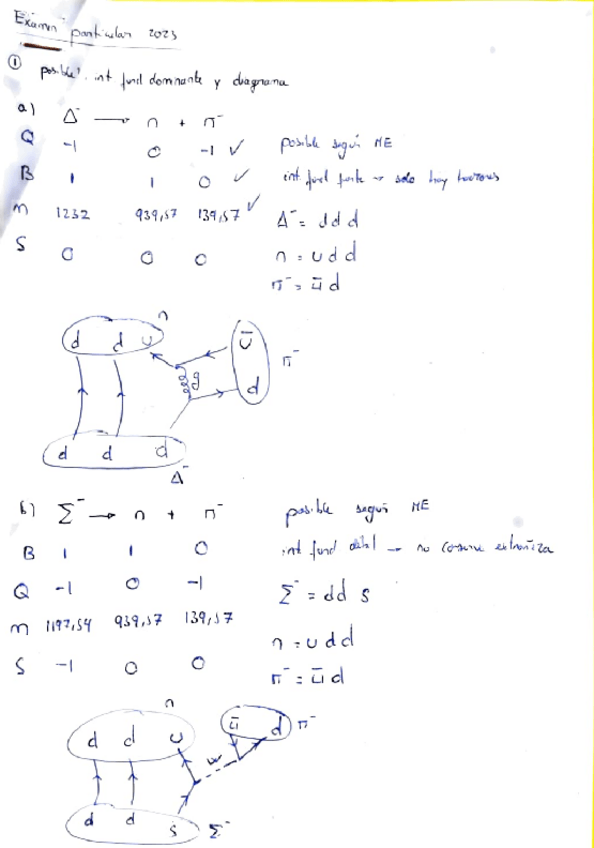 Examen particular 2023
① posible?, int fund dominante y diagrama
a) Δ⁻ → n + π⁻
Q -1 0 -1 ✓ posible según ME
B 1 1 0 ✓ int fund fuerte → solo hay hadrones
m 1232 939,57 139,57 ✓ Δ⁻ = d d d
S 0 0 0 n = u d d
π⁻ = ū d
n
d d u ū
g π⁻
d
d d d
Δ⁻
b) Σ⁻ → n + π⁻ posible según ME
B 1 1 0 int fund débil → no conserva extrañeza
Q -1 0 -1 Σ⁻ = dd s
m 1197,54 939,57 139,57
n = u d d
S -1 0 0
π⁻ = ū d
n
d d u ū d π⁻
w
d d s Σ⁻